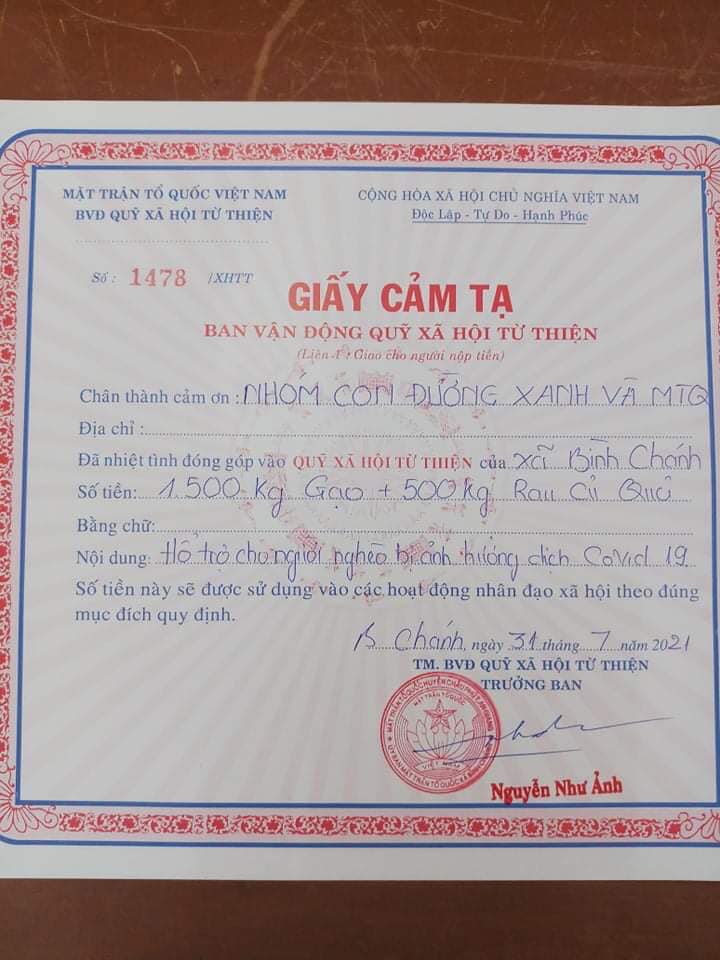 MẶT TRẬN TỔ QUỐC VIỆT NAM
BVĐ QUỸ XÃ HỘI TỪ THIỆN
CỘNG HÒA XÃ HỘI CHỦ NGHĨA VIỆT NAM
Độc Lập - Tự Do - Hạnh Phúc
Số : 1478 /XHTT
GIẤY CẢM TẠ
BAN VẬN ĐỘNG QUỸ XÃ HỘI TỪ THIỆN
(Liên Giao cho người nộp tiền)
Chân thành cảm ơn : NHÓM CON ĐƯỜNG XANH VÀ MTQ
Địa chỉ :
Đã nhiệt tình đóng góp vào QUỸ XÃ HỘI TỪ THIỆN của xã Bình Chánh
Số tiền: 1.500 Kg Gạo + 500 Kg Rau Củ Quả
Bằng chữ:
Nội dung: Hổ trợ cho người nghèo bị ảnh hưởng dịch Covid 19
Số tiền này sẽ được sử dụng vào các hoạt động nhân đạo xã hội theo đúng
mục đích quy định.
B Chánh, ngày 31 tháng 7 năm 2021
TM. BVĐ QUỸ XÃ HỘI TỪ THIỆN
TRƯỞNG BAN
MẶT TRẬN TỔ QUỐC
VIỆT NAM
Nguyễn Như Ảnh